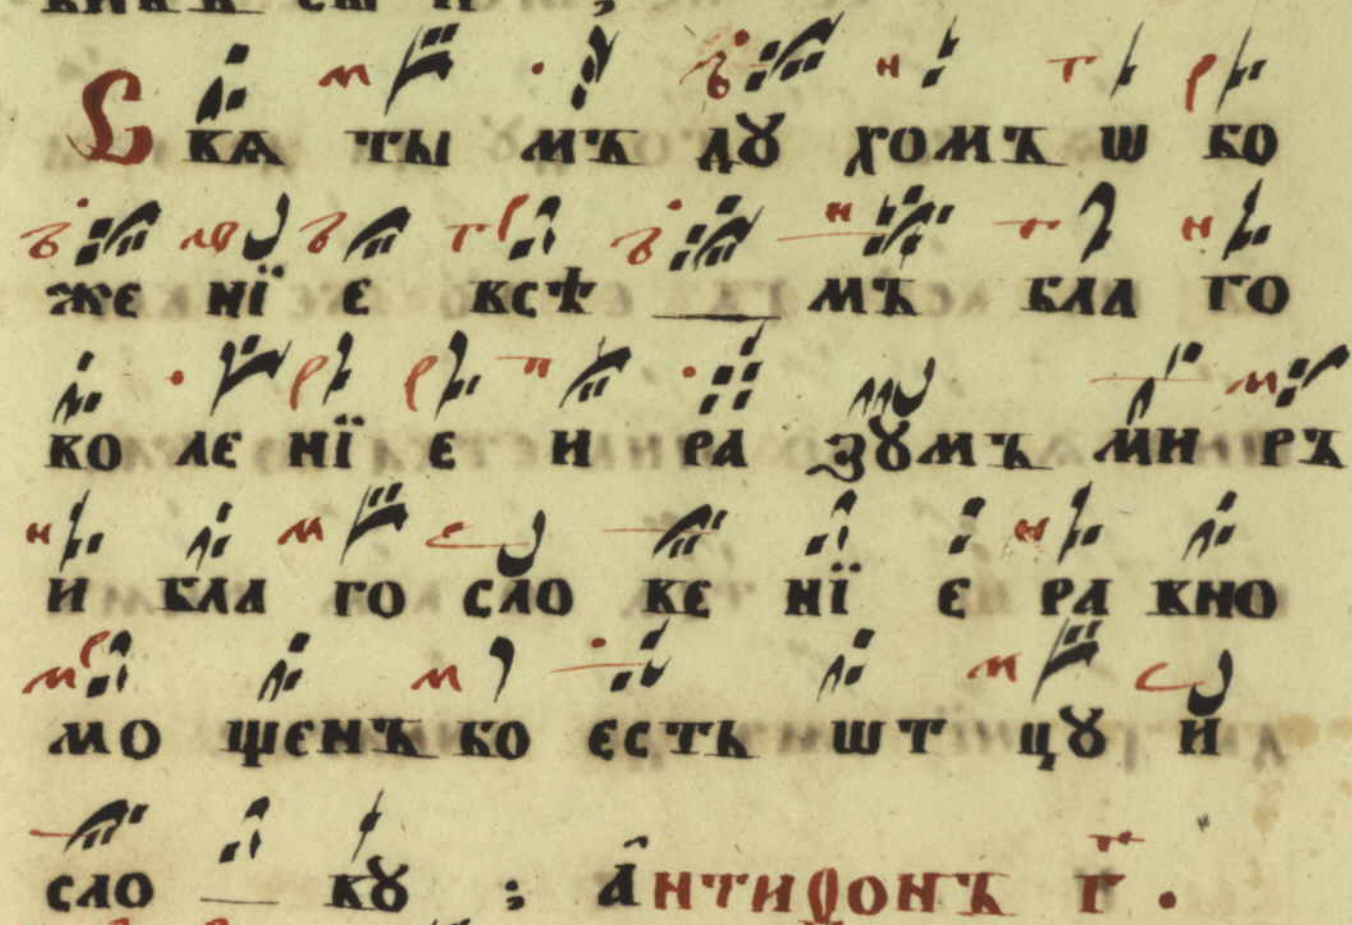 Свѧ ты мъ дꙋ хомъ ѡ бо
же нї е всѣ мъ бла го
во ле нї е и ра зꙋмъ ми ръ
и бла го сло ве нї е ра вно
мо щенъ бо есть ѿ т цꙋ и
сло вꙋ : а҆нтифонъ г҃ .